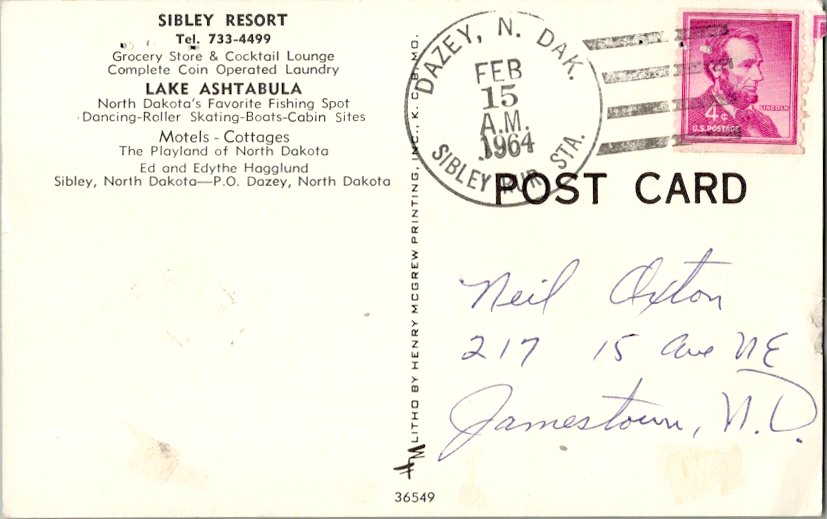 SIBLEY RESORT
Tel. 733-4499
Grocery Store & Cocktail Lounge
Complete Coin Operated Laundry
LAKE ASHTABULA
North Dakota's Favorite Fishing Spot
Dancing-Roller Skating-Boats-Cabin Sites
Motels - Cottages
The Playland of North Dakota
Ed and Edythe Hagglund
Sibley, North Dakota—P.O. Dazey, North Dakota
LITHO BY HENRY MCGREW PRINTING, INC., K. C. 8, MO.
HM
36549
DAZEY, N. DAK.
FEB
15
A.M.
1964
SIBLEY RUR. STA.
LINCOLN
4¢
U.S. POSTAGE
POST CARD
Neil Oxton
217 15 Ave NE
Jamestown, N.D.